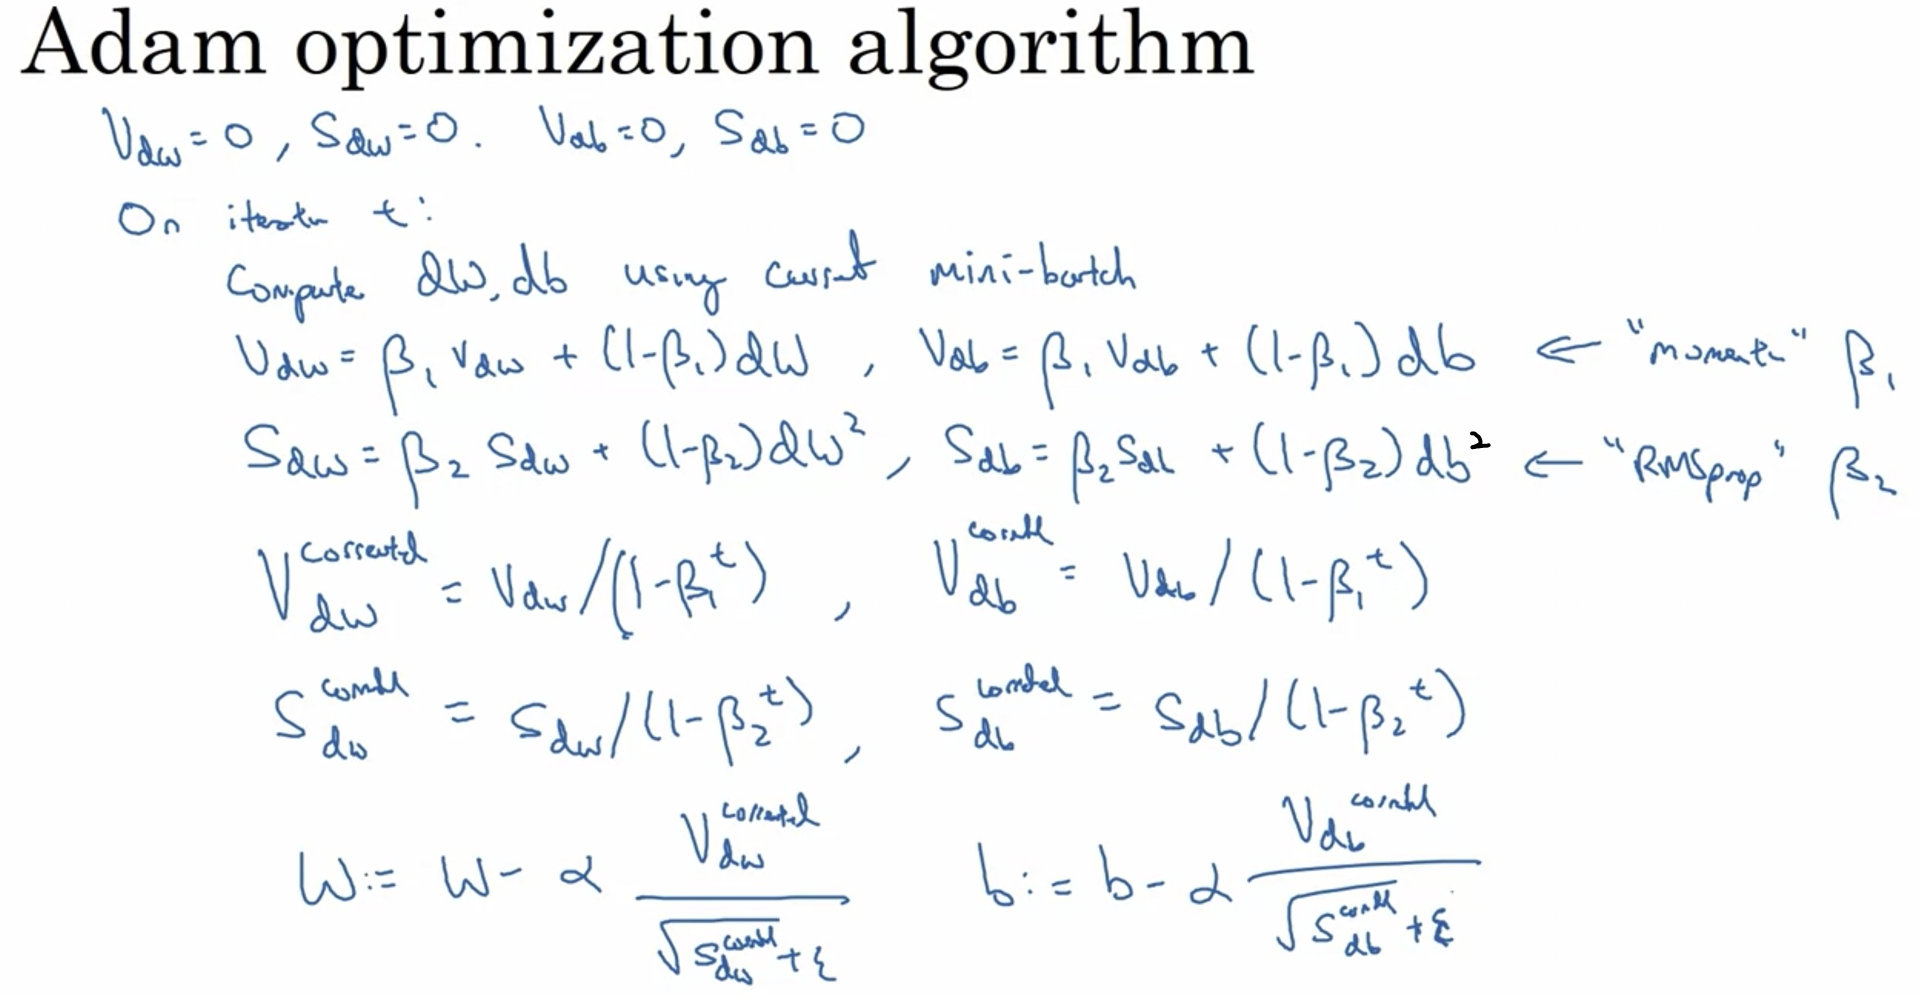 Adam optimization algorithm
V_dw = 0, S_dw = 0. V_db = 0, S_db = 0
On iteratn t:
Compute dW, db using current mini-batch
V_dw = β₁ V_dw + (1-β₁) dW, V_db = β₁ V_db + (1-β₁) db ← "momentu" β₁
S_dw = β₂ S_dw + (1-β₂) dW², S_db = β₂ S_db + (1-β₂) db² ← "RMSprop" β₂
V_dw^corrected = V_dw/(1-β₁^t), V_db^corrected = V_db/(1-β₁^t)
S_dw^corrected = S_dw/(1-β₂^t), S_db^corrected = S_db/(1-β₂^t)
W := W - α V_dw^corrected / (√S_dw^corrected + ε) b := b - α V_db^corrected / (√S_db^corrected + ε)